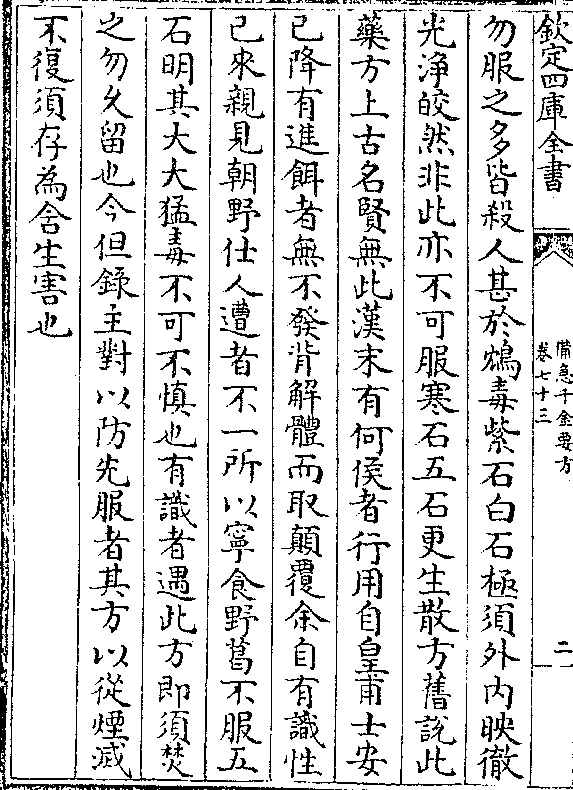 欽定四庫全書
備急千金要方
卷七十三
二
勿服之多皆殺人甚於鴆毒紫石白石極須外内映徹
光淨皎然非此亦不可服寒石五石更生散方舊說此
藥方上古名賢無此漢末有何侯者行用自皇甫士安
已降有進餌者無不發背解體而取顛覆余自有識性
已來親見朝野仕人遭者不一所以寧食野葛不服五
石明其大大猛毒不可不慎也有識者遇此方即須焚
之勿久留也今但錄主對以防先服者其方以從煙滅
不復須存為含生害也